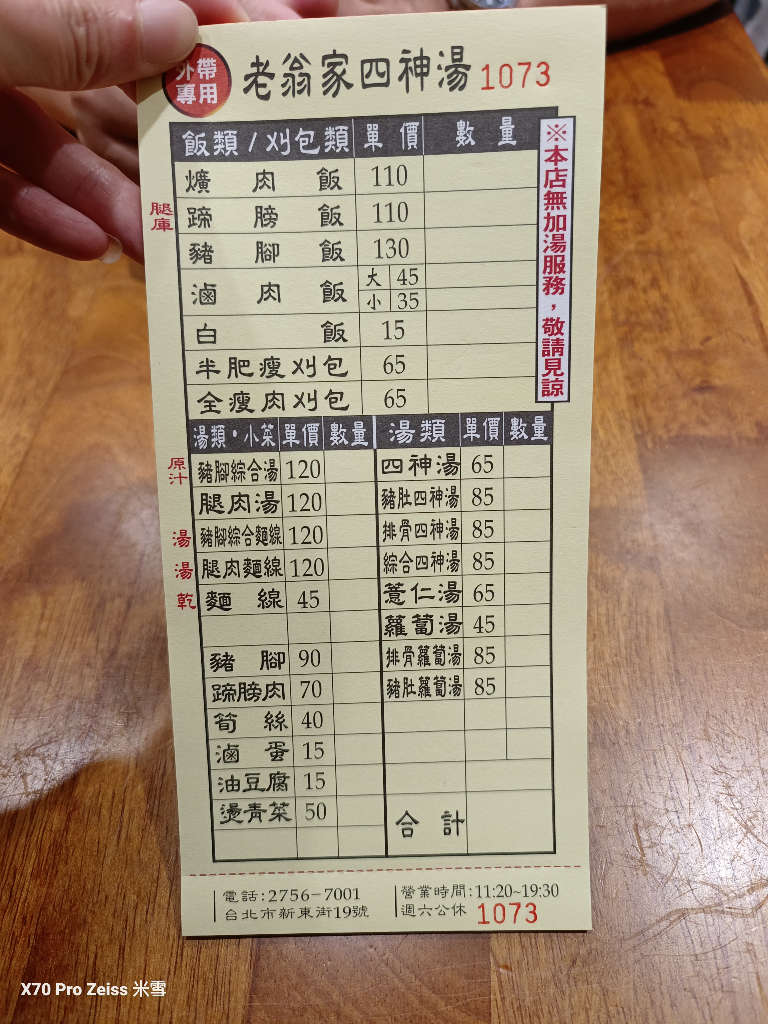 外帶
專用
老翁家四神湯 1073
飯類/刈包類 單價 數量
爌肉飯 110
腿庫 蹄膀飯 110
豬腳飯 130
滷肉飯 大 45
小 35
白飯 15
半肥瘦刈包 65
全瘦肉刈包 65
※本店無加湯服務，敬請見諒
湯類·小菜 單價 數量 湯類 單價 數量
原汁 豬腳綜合湯 120 四神湯 65
腿肉湯 120 豬肚四神湯 85
湯 豬腳綜合麵線 120 排骨四神湯 85
湯 腿肉麵線 120 綜合四神湯 85
乾 麵線 45 薏仁湯 65
蘿蔔湯 45
豬腳 90 排骨蘿蔔湯 85
蹄膀肉 70 豬肚蘿蔔湯 85
筍絲 40
滷蛋 15
油豆腐 15
燙青菜 50 合計
電話:2756-7001 營業時間:11:20~19:30
台北市新東街19號 週六公休 1073
X70 Pro Zeiss 米雪